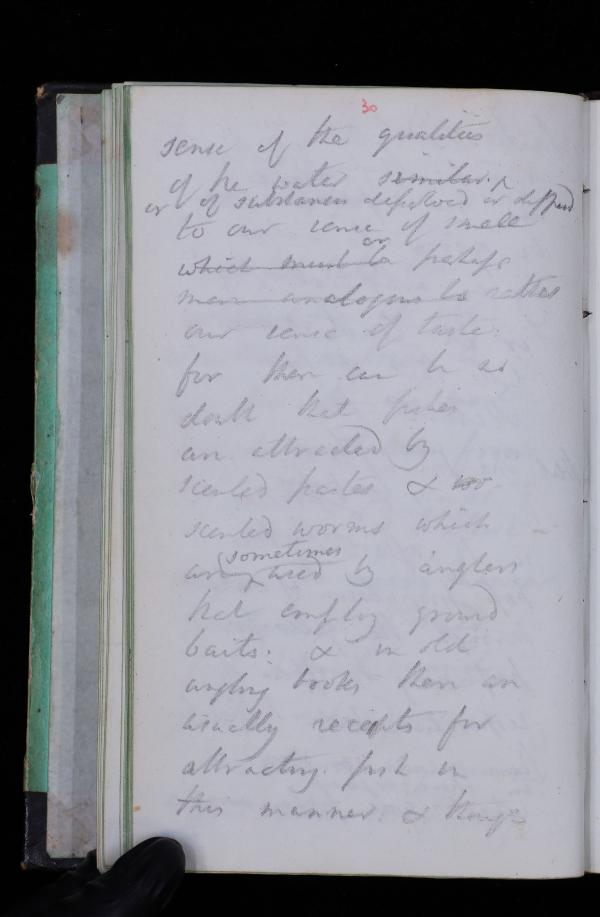 30
sense of the qualities
of the water similar
or of substances dissolved or diffused
to our sense of smell
or
which must be perhaps
more analogous to rather
our sense of taste.
for there can be no
doubt that fishes
are attracted by
scented pastes & wo
scented worms which
sometimes
are used by anglers
that employ ground
baits: & in old
angling books there are
usually receipts for
attracting fish in
this manner & though